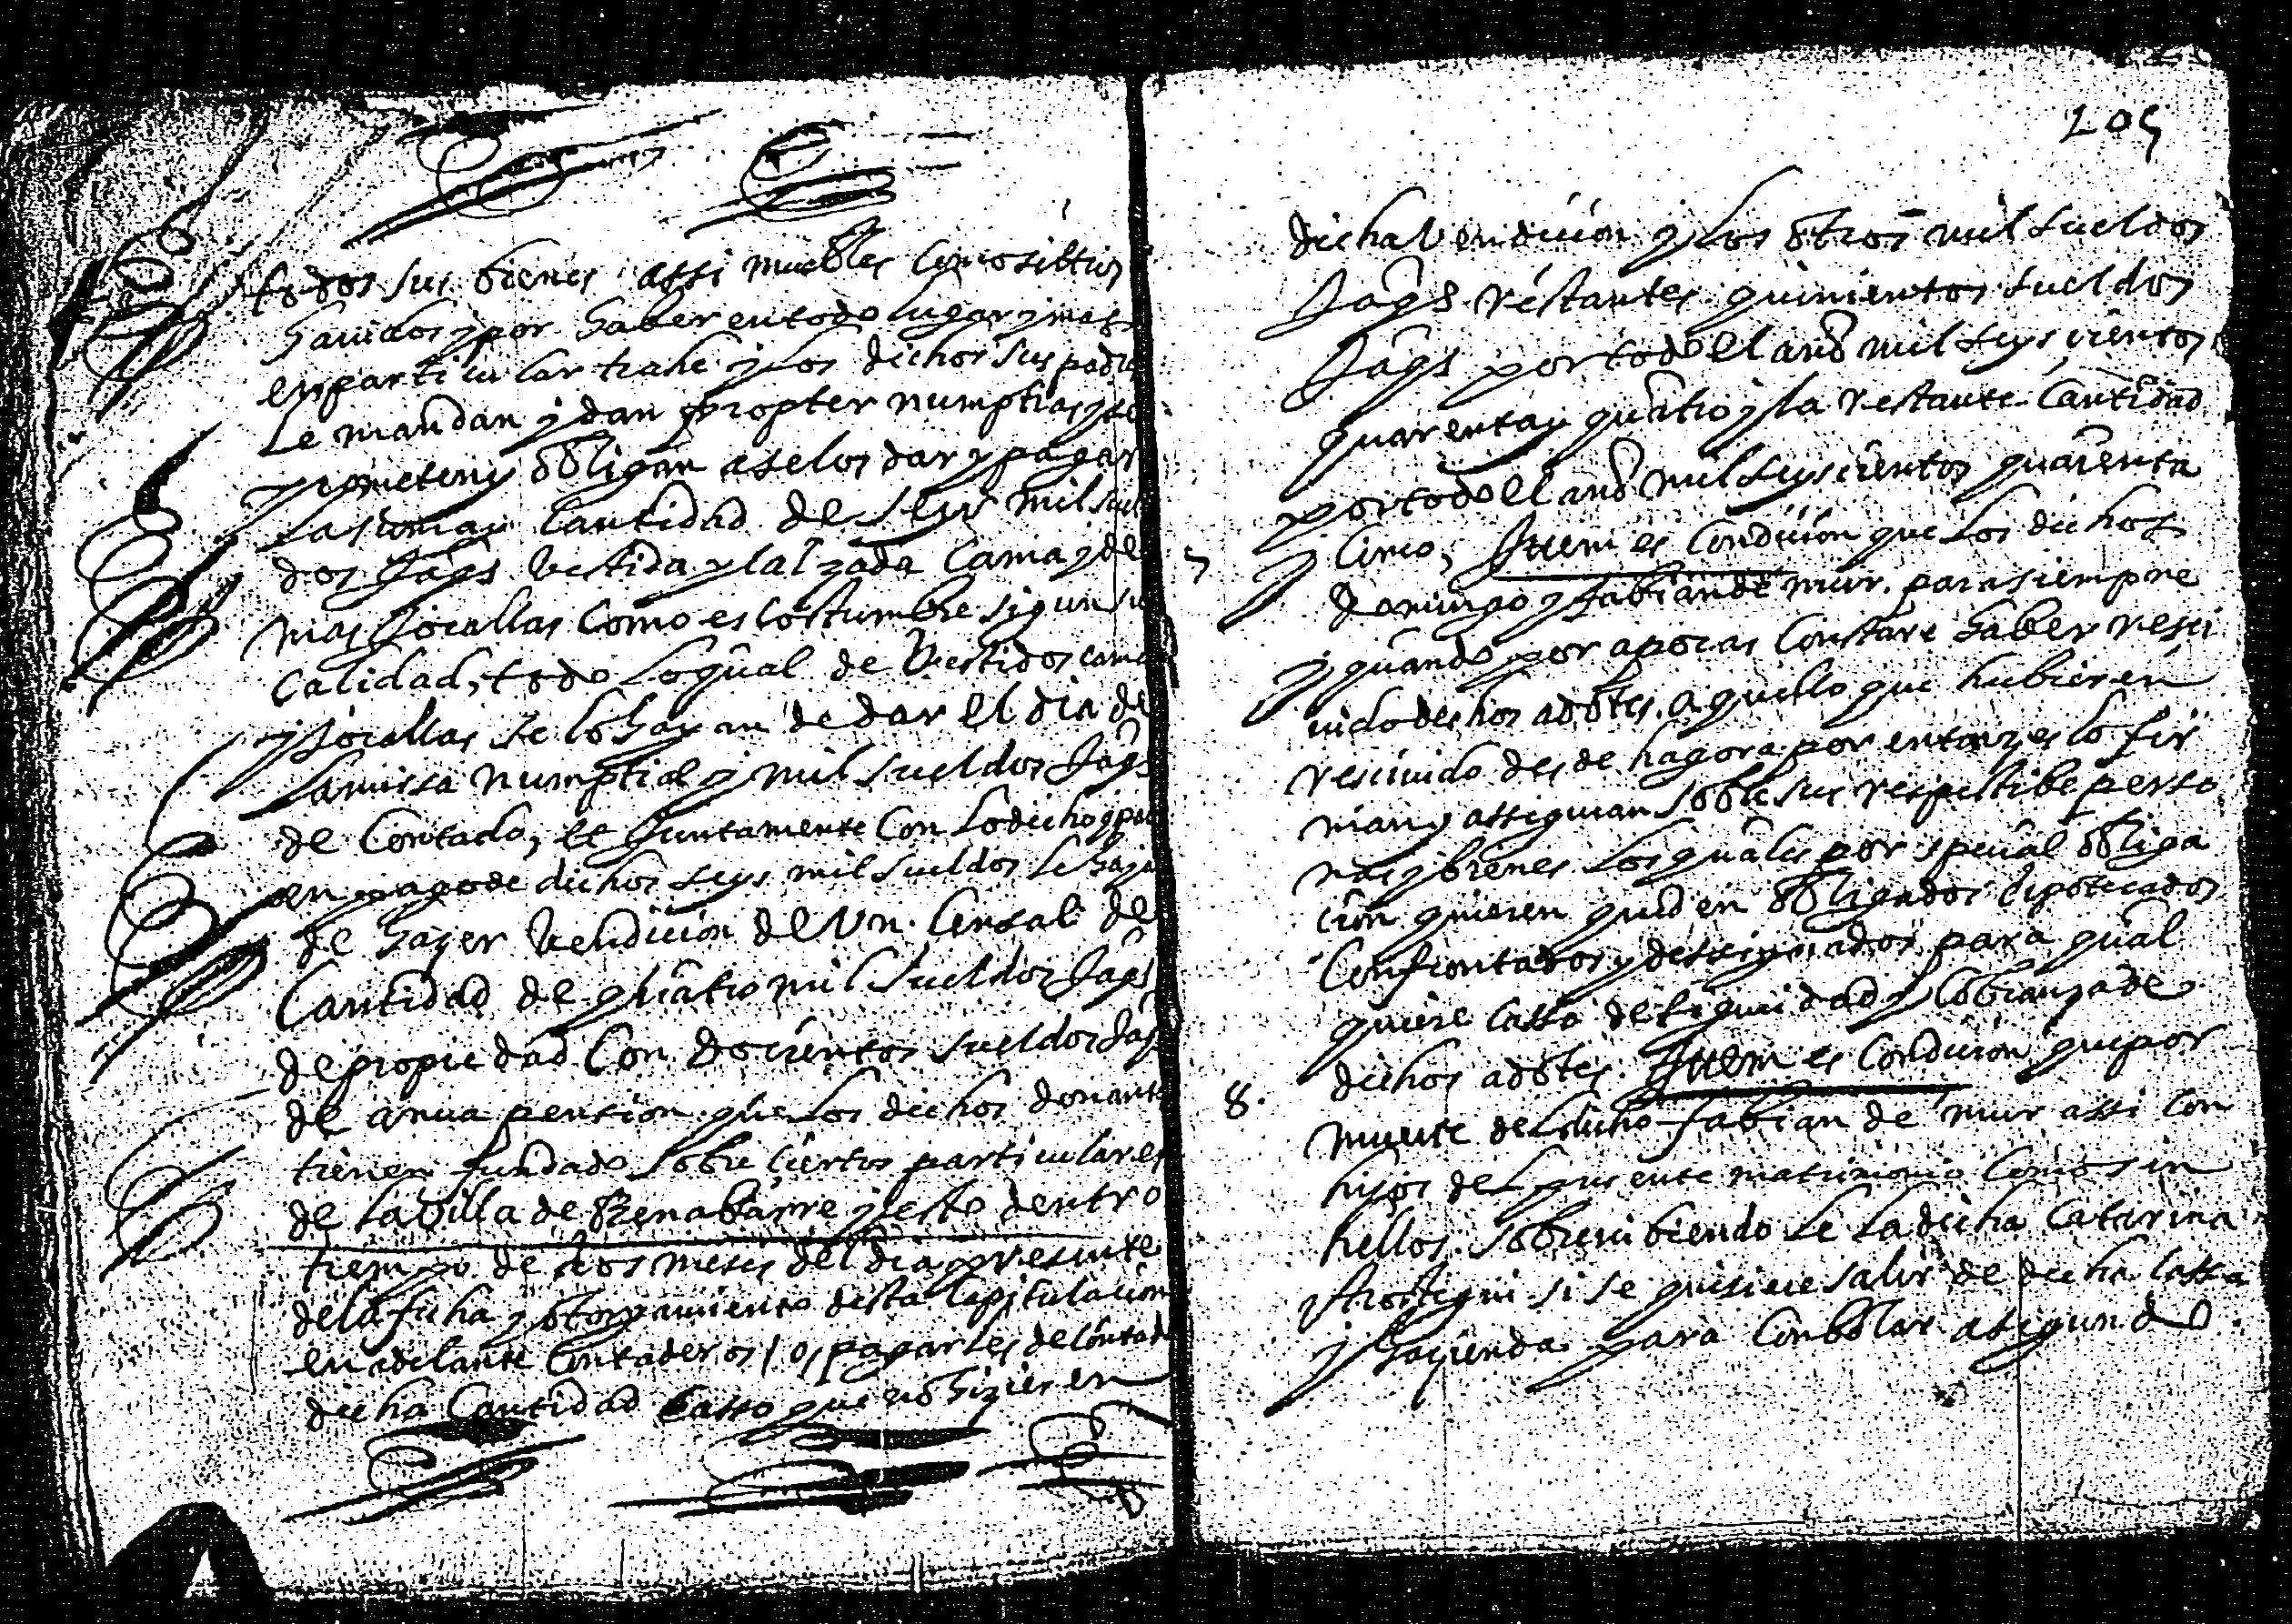 todos sus bienes assi muebles como sittios
hauidos y por haber en todo lugar y mas
en particular trahe y los dichos sus padres
le mandan y dan propter numptias y se
prometen y obligan a selos dar y pagar
la suma y cantidad de seys mil suel
dos Jaqs vestida y calzada cama y de
mas Jocallas como es costumbre sigun su
calidad, todo lo qual de vestidos cama
y Jocallas se lo hayan de dar el dia de
la missa numptial y mil sueldos Jaqs
de contado, et Juntamente con lo dicho y
en pago de dichos seys mil sueldos le haya
de hazer vendicion de un censal de
cantidad de quatro mil sueldos Jaqs
de propiedad con docientos sueldos Jaqs
de anua pension que los dichos donantes
tienen fundado sobre ciertos particulares
de la villa de Benabarre y esto dentro
tiempo de dos meses del dia presente
de la ficha y otorgamiento desta capitulacion
en adelante contaderos / o pagarles de contado
dicha cantidad casso que no hizieren
205
dicha vendicion y los otros mil sueldos
Jaqs restantes quinientos sueldos
Jaqs por todo el año mil seys cientos
quarenta y quatro y la restante cantidad
por todo el año mil seyscientos quarenta
7 y cinco, Ittem es condicion que los dichos
Domingo y fabian de mur para siempre
y quando por apocas constare haber resci
uido dechos adotes aquello que hubieren
resciuido des de hagora por entonzes lo fir
man y assiguran sobre sus respectibe perso
nas y bienes los quales por special obliga
cion quieren queden obligados hipotecados
confrontados y dessignados para qual
quiere casso de siguridad y cobranza de
8. dichos adotes. Ittem es condicion que por
muerte del dicho fabian de mur assi con
hijos del presente matrimonio como sin
hellos sobreuibiendo le la dicha Catarina
si se quisiere salir de dicha cassa
y hazienda para conbolar a segundo